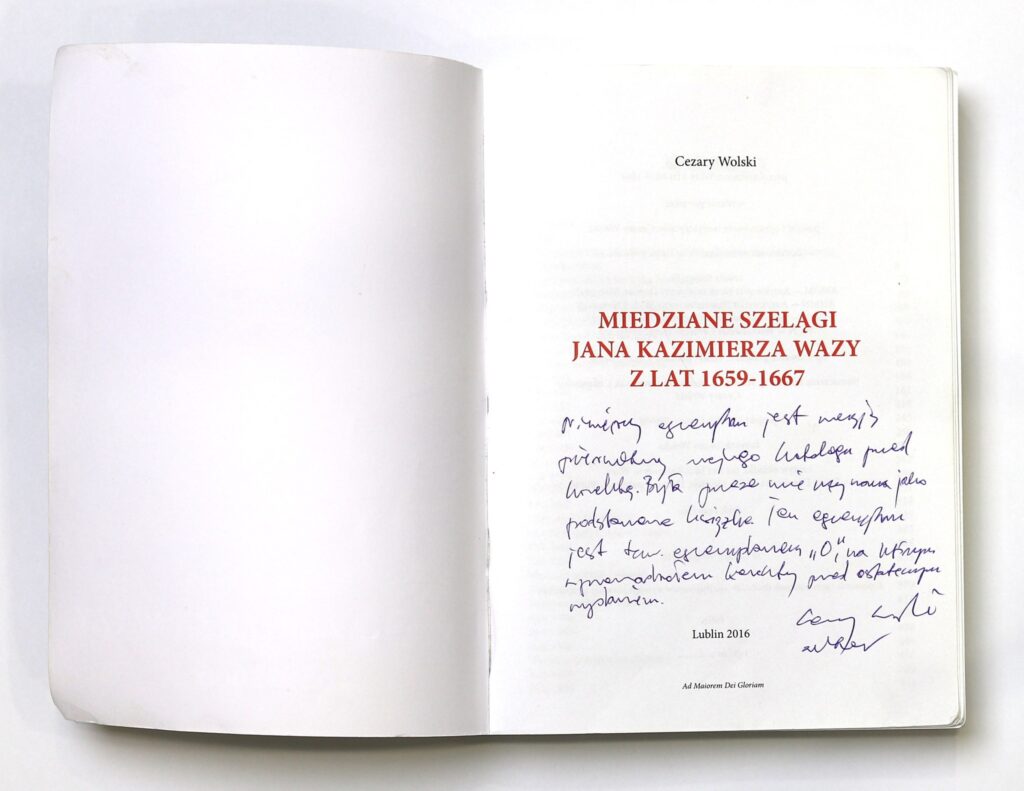 Cezary Wolski
MIEDZIANE SZELĄGI
JANA KAZIMIERZA WAZY
Z LAT 1659-1667
Niniejszy egzemplarz jest wersją
pierwotną mojego katalogu przed
korektą. Była przeze mnie używana jako
podstawowa książka. Ten egzemplarz
jest tzw. egzemplarzem „0”, na którym
wprowadzałem korekty przed ostatecznym
wydaniem.
Cezary Wolski
autor
Lublin 2016
Ad Maiorem Dei Gloriam